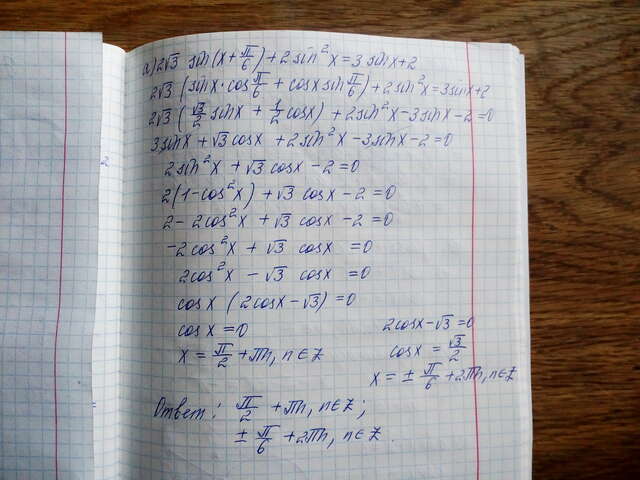 а) 2√3 sin(x + π/6) + 2 sin²x = 3 sinx + 2
2√3 (sinx · cos π/6 + cosx sin π/6) + 2 sin²x = 3sinx + 2
2√3 (√3/2 sinx + 1/2 cosx) + 2sin²x - 3sinx - 2 = 0
3sinx + √3 cosx + 2sin²x - 3sinx - 2 = 0
2
2sin²x + √3 cosx - 2 = 0
2(1 - cos²x) + √3 cosx - 2 = 0
2 - 2cos²x + √3 cosx - 2 = 0
-2cos²x + √3 cosx = 0
2cos²x - √3 cosx = 0
cosx (2cosx - √3) = 0
cosx = 0 2cosx - √3 = 0
x = π/2 + πn, n∈Z cosx = √3/2
x = ± π/6 + 2πn, n∈Z
Ответ: π/2 + πn, n∈Z;
± π/6 + 2πn, n∈Z.